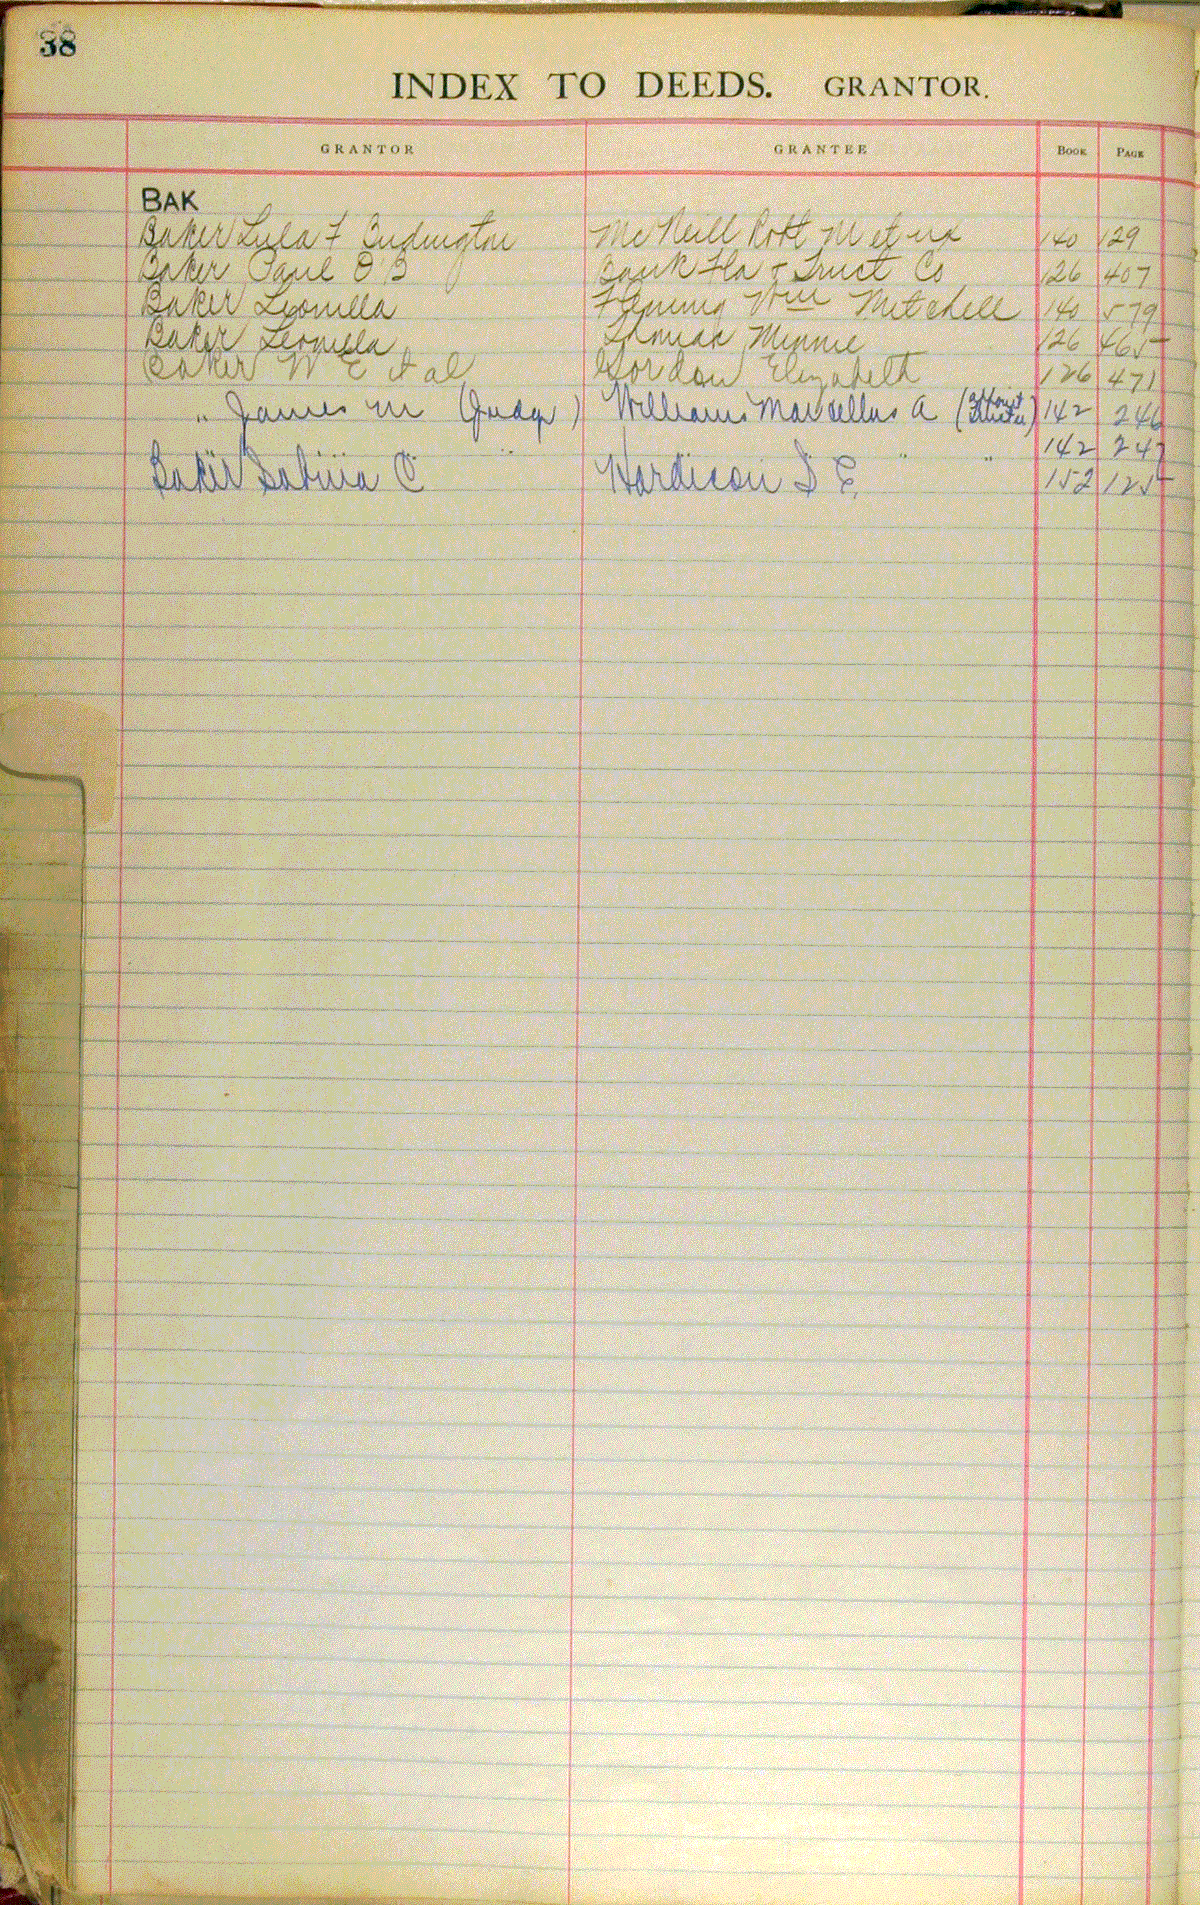 38
INDEX TO DEEDS. GRANTOR.
GRANTOR GRANTEE BOOK PAGE
BAK
Baker Lula F Budington McNeill Robt M et ux 140 129
Baker Paul O'B Bank Fla & Trust Co 126 407
Baker Leonilla Fleming Wm Mitchell 140 579
Baker Leonilla Thomas Minnie 126 465
Baker W E et al Gordon Elizabeth 126 471
" James M (Judge) Williams Marcellus A ( Trustee) 142 246
" " " " 142 247
Baker Sabina C Hardison S E 152 125